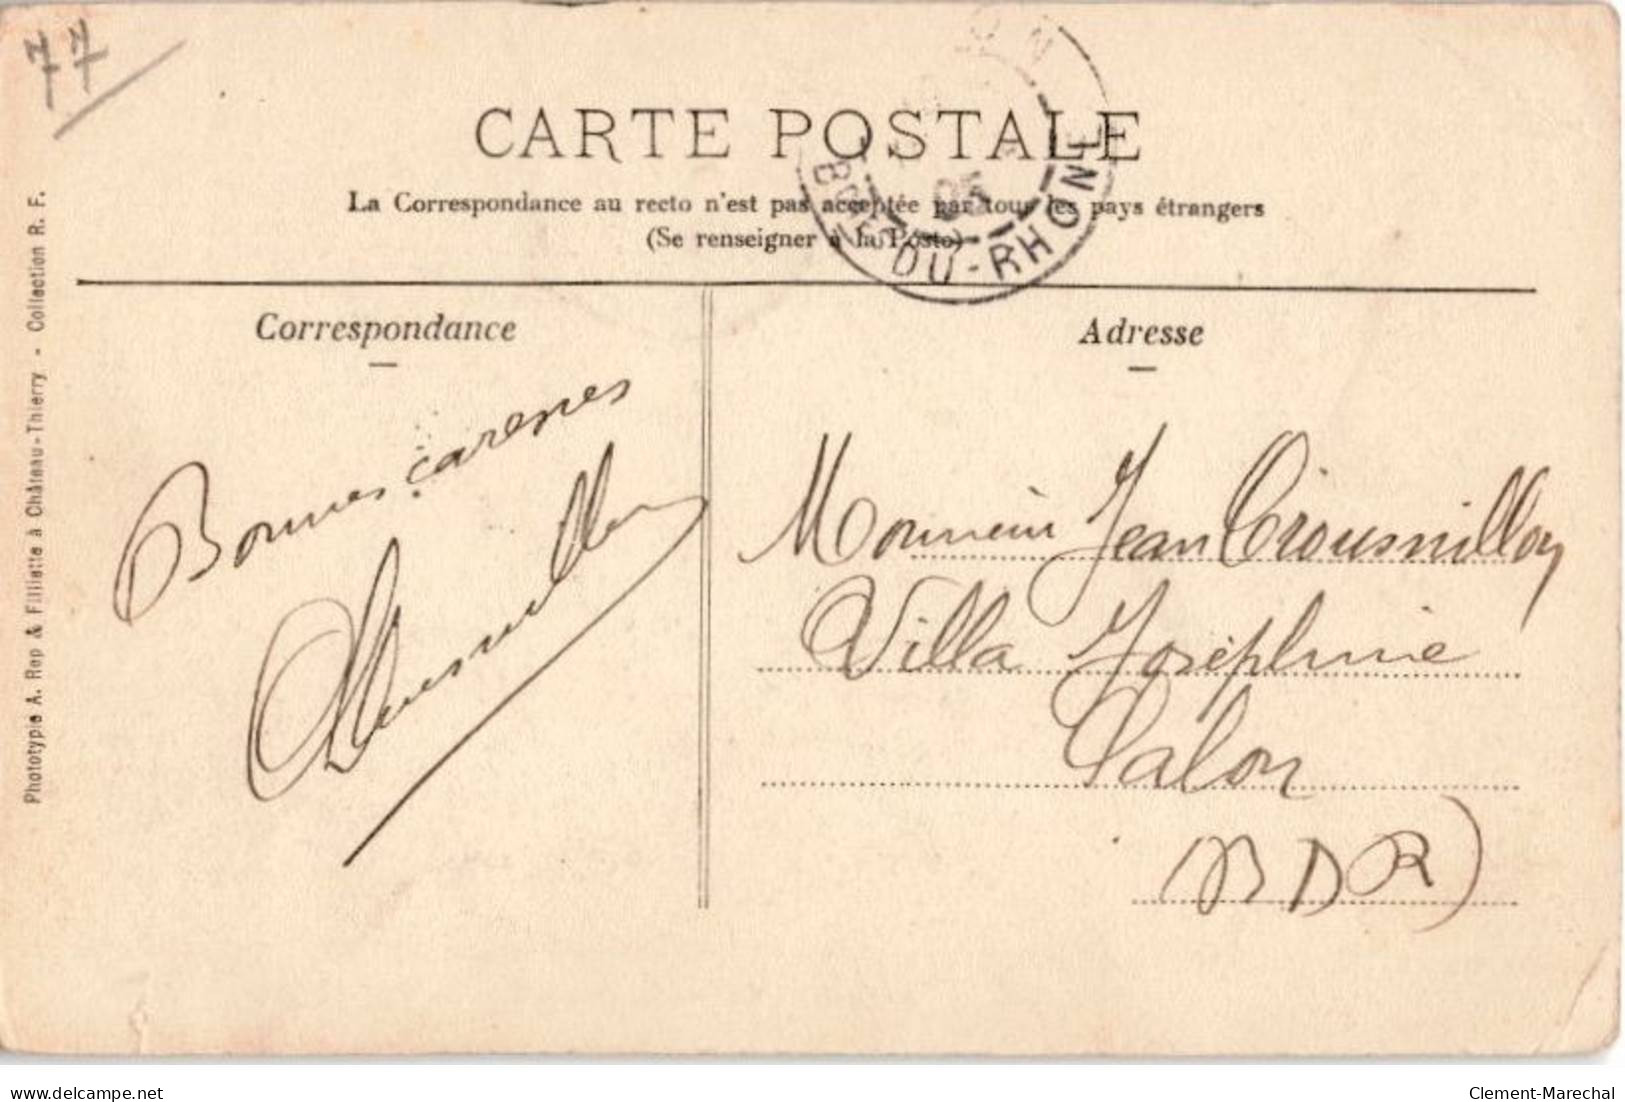 77
CARTE POSTALE
La Correspondance au recto n'est pas acceptée par tous les pays étrangers
(Se renseigner à la Poste)
BCHES-DU-RHONE
Phototypie A. Rep & Filliette à Château-Thierry. - Collection R. F.
Correspondance
Bonnes caresses
Adresse
Monsieur Jean
Villa Joséphine
Salon
(BDR)
delcampe.net
Clement-Marechal